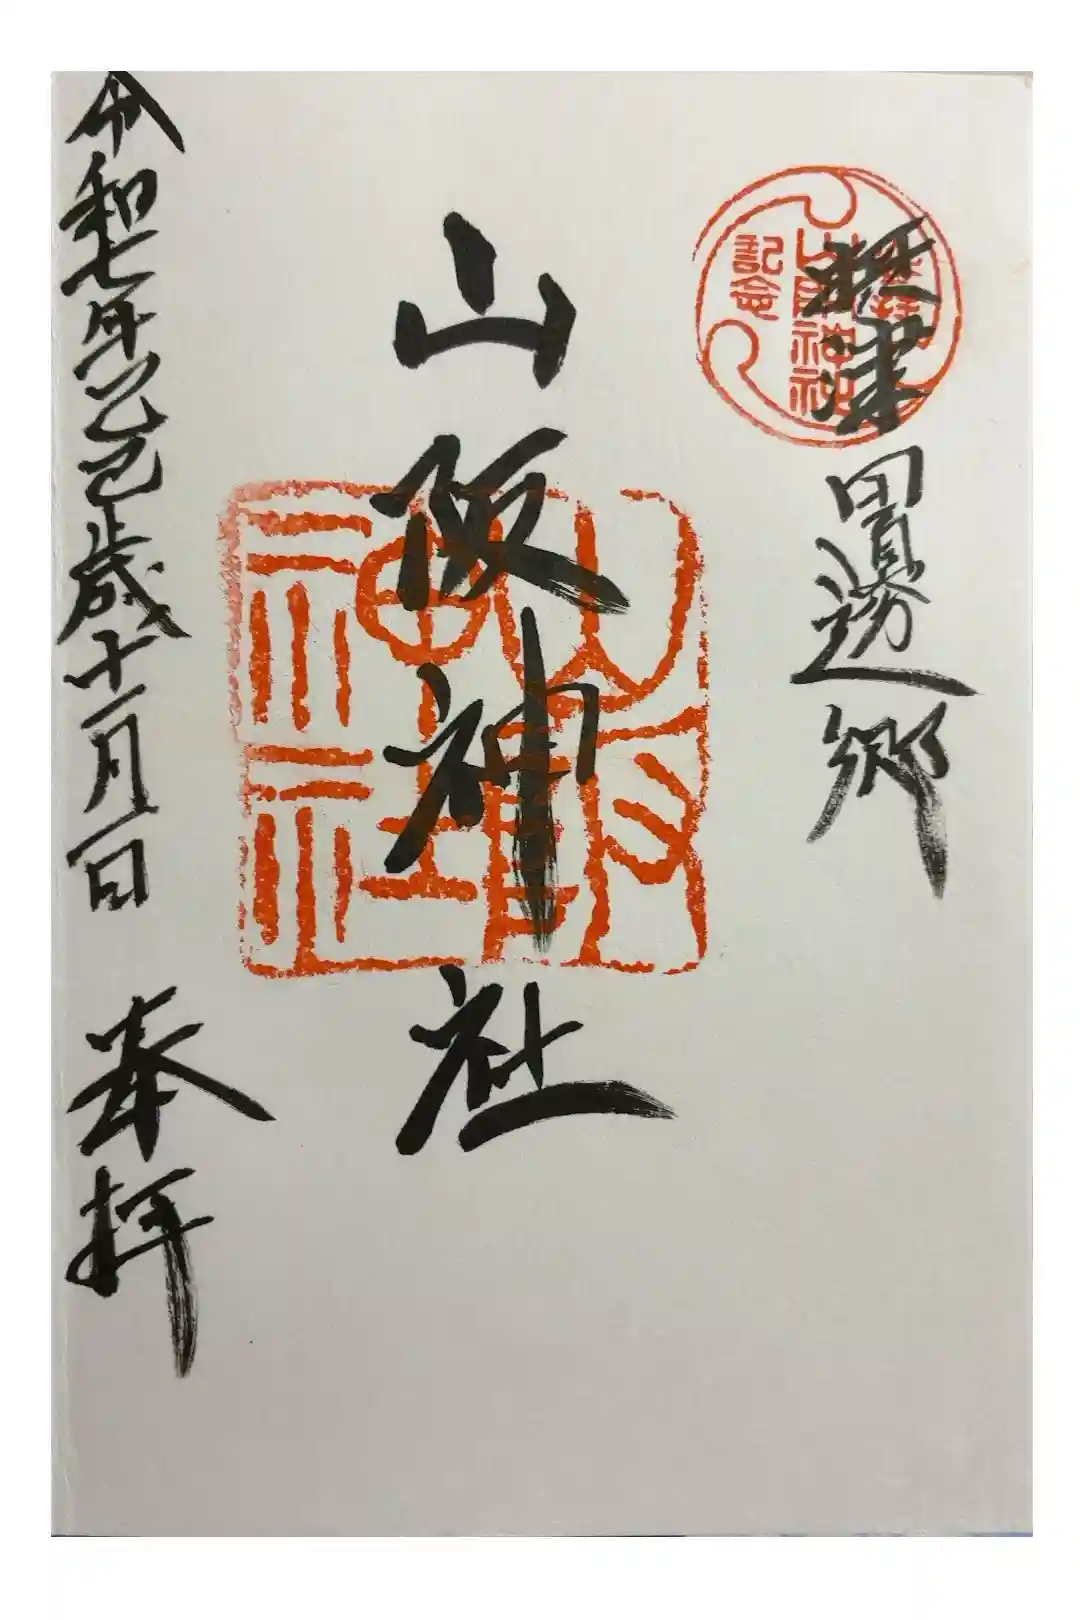 摂津
田邊郷
参拝
山阪神社
記念
山阪神社
山阪神社
令和七年乙巳歳十一月一日
奉拝